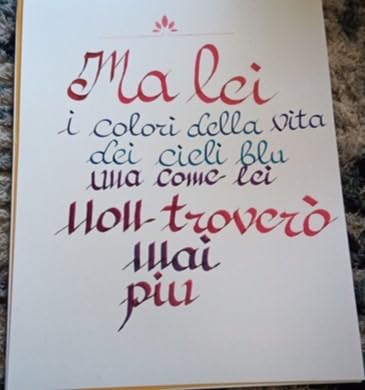 Ma lei
i colori della vita
dei cieli blu
una come lei
Non troverò
Mai
piu